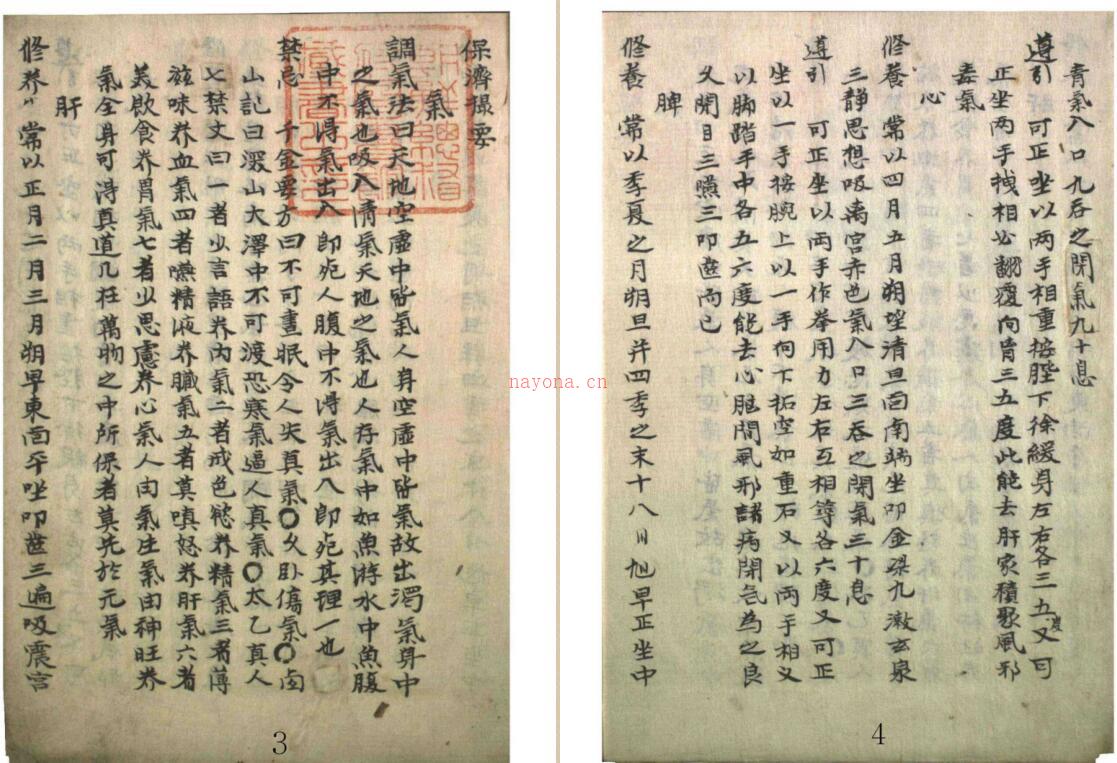 保濟撮要
氣
調氣法曰天地空虛中皆氣人身空虛中皆氣故出濁氣身中
之氣也吸入清氣天地之氣也人存氣中如魚游水中魚腹
中不得氣出入即死人腹中不得氣出入即死其理一也
禁忌 千金要方曰不可晝眠令人失真氣〇久臥傷氣〇西
山記曰深山大澤中不可渡恐寒氣逼人真氣〇太乙真人
七禁文曰一者少言語养內氣二者戒色慾养精氣三者薄
滋味养血氣四者嚥精液养臟氣五者莫嗔怒养肝氣六者
美飲食养胃氣七者少思慮养心氣人由氣生氣由神旺养
氣全身可得真道凡在萬物之中所保者莫先於元氣
肝
修养 常以正月二月三月朔旦東面平坐叩齒三遍吸震宮
3
青氣入口九吞之閉氣九十息
導引 可正坐以兩手相重按䏶下徐緩身左右各三五度又可
正坐两手拽相叉翻覆向胷三五度此能去肝家積聚風邪
毒氣
心
修養 常以四月五月朔望清旦面南端坐叩金梁九漱玄泉
三静思想吸离宮赤色氣入口三吞之閉氣三十息
導引 可正坐以两手作拳用力左右互相筑各六度又可正
坐以一手按腕上以一手向下拓空如重石又以两手相叉
以脚踏手中各五六度能去心胞間風邪諸病閉氣為之良
久閉目三嚥三叩齒而已
脾
修養 常以季夏之月朔旦并四季之末十八日旭旦正坐中
4
nayona.cn